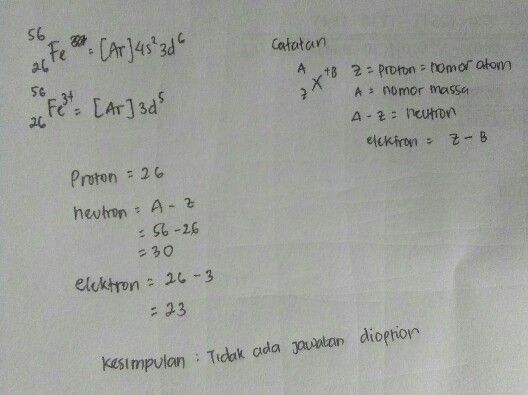 ⁵⁶₂₆Fe = [Ar] 4s² 3d⁶
⁵⁶₂₆Fe³⁺ = [Ar] 3d⁵
Catatan
ᴬ_Z X⁺ᴮ Z = proton = nomor atom
A = nomor massa
A - Z = neutron
elektron = Z - B
Proton = 26
neutron = A - Z
= 56 - 26
= 30
elektron = 26 - 3
= 23
Kesimpulan : Tidak ada jawaban dioption